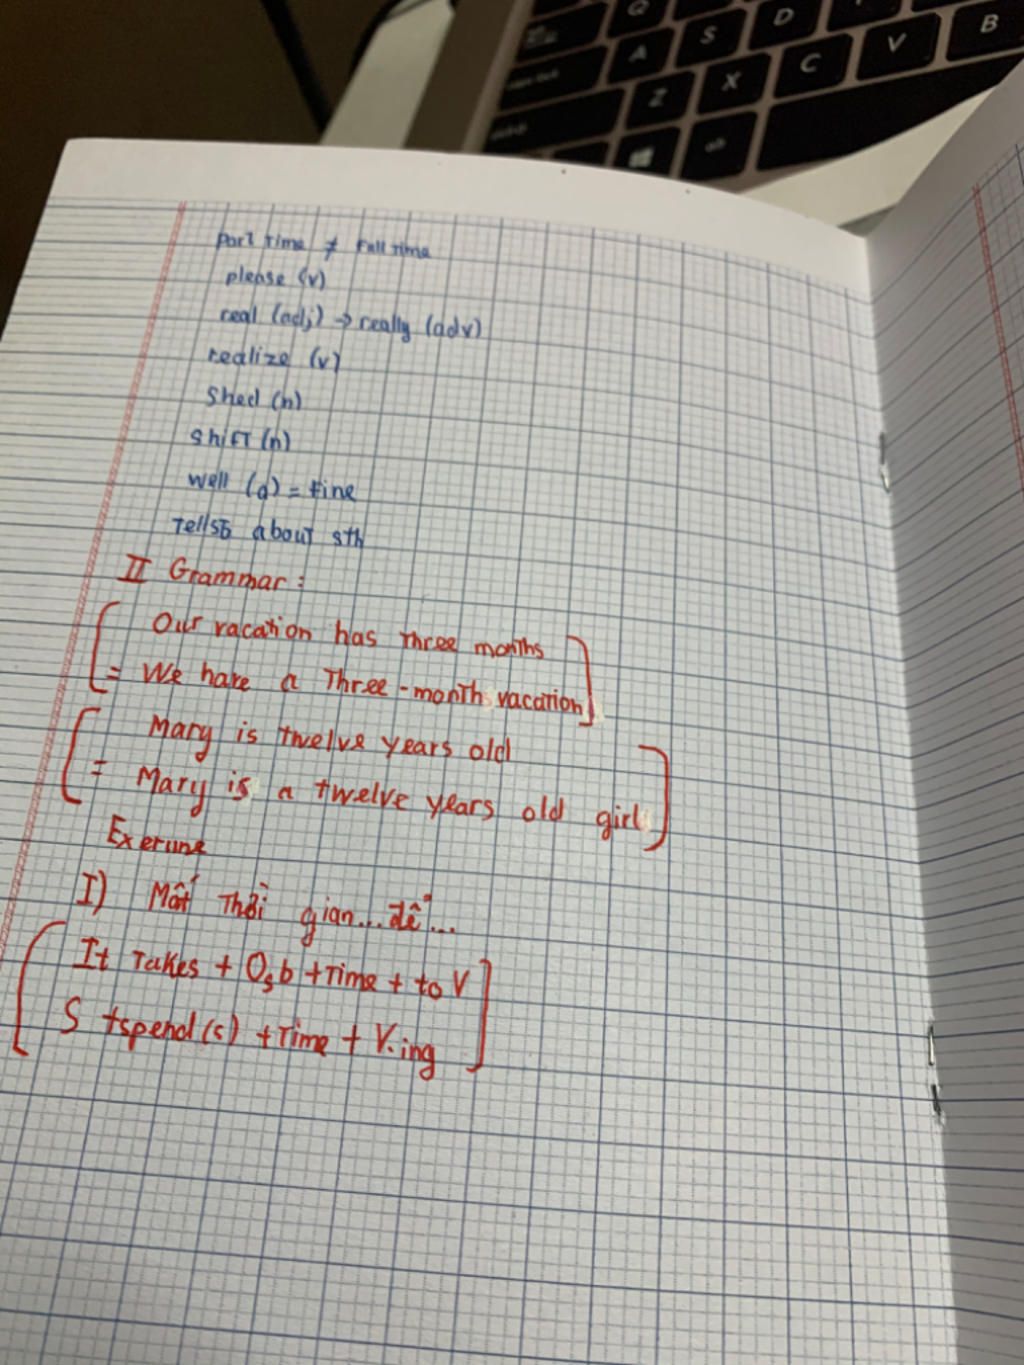 Q
A S D
Z X C V B
alt
Part time ≠ Full time
please (v)
real (adj) → really (adv)
realize (v)
Shed (n)
Shift (n)
well (a) = fine
about sth
II Grammar :
Our vacation has three months
= We have a Three-month vacation
Mary is twelve years old
= Mary is a twelve years old girl
I) Mất thời gian... để...
It Takes + O + Time + to V
S + spend(s) + Time + V-ing